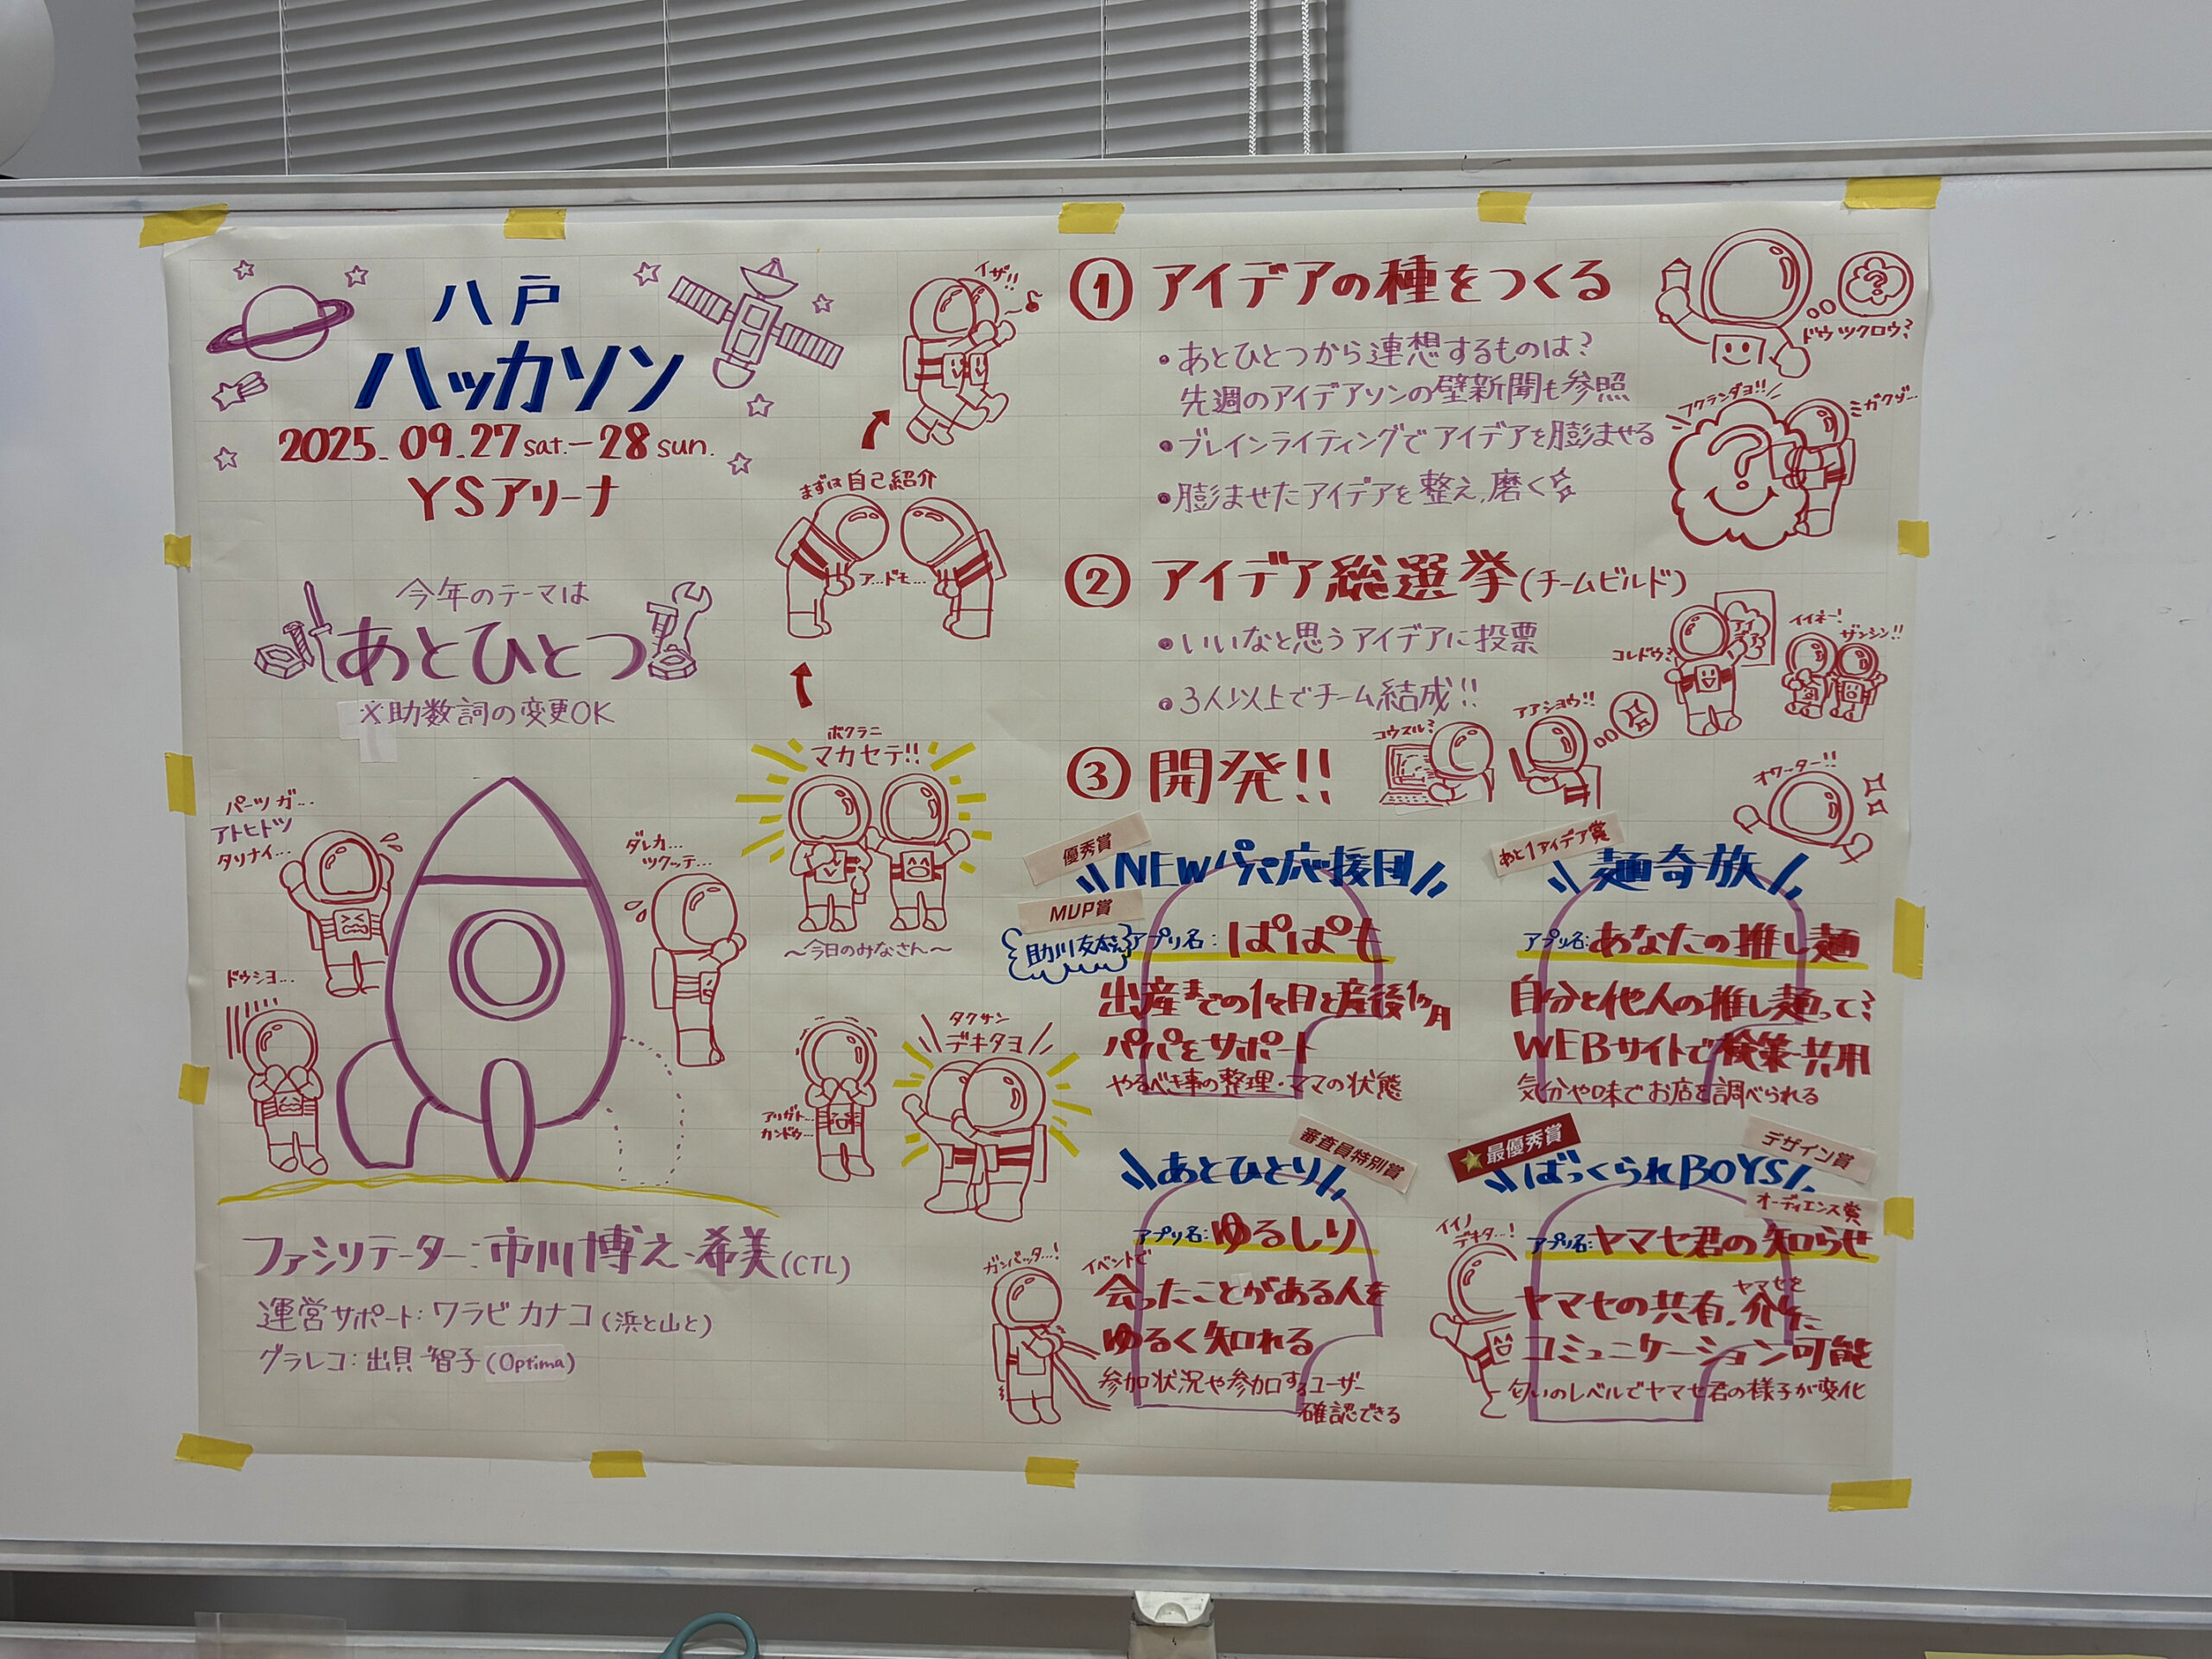 八戸
ハッカソン
2025.09.27 sat.-28 sun.
YSアリーナ
今年のテーマは
あとひとつ
※助数詞の変更OK
パーツガ...
アトヒトツ
タリナイ...
ドウシヨ...
ダレカ...
ツクッテ...
ファシリテーター:市川博之・希美(CTL)
運営サポート:ワラビ カナコ(浜と山と)
グラレコ:出貝 智子(Optima)
イザ!!
まずは自己紹介
ア...ドモ...
ボクラニ
マカセテ!!
~今日のみなさん~
タクサン
デキタヨ
アリガト...
カンドウ...
① アイデアの種をつくる
・あとひとつから連想するものは?
先週のアイデアソンの壁新聞も参照
・ブレインライティングでアイデアを膨ませる
・膨ませたアイデアを整え,磨く
ドウツクロウ?
フクランダヨ!!
ミガクゾ...
② アイデア総選挙(チームビルド)
・いいなと思うアイデアに投票
・3人以上でチーム結成!!
コレドウ?
アイデア
イイネー!
ザンシン!!
③ 開発!!
コウスル?
アアショウ!!
オワーター!!
優秀賞
NEWパパ応援団
MUP賞
助川友太さん
アプリ名:ぱぱも
出産までの1ヶ月と産後1ヶ月
パパをサポート
やるべき事の整理・ママの状態
あと1アイデア賞
麺奇族
アプリ名:あなたの推し麺
自分と他人の推し麺って?
WEBサイトで検索・共用
気分や味でお店を調べられる
審査員特別賞
あとひとり
アプリ名:ゆるしり
イベントで
会ったことがある人を
ゆるく知れる
参加状況や参加するユーザー
確認できる
ガンバッタ...!
最優秀賞
デザイン賞
ばっくられBOYS
オーディエンス賞
イイノ
デキタ...!
アプリ名:ヤマセ君の知らせ
ヤマセの共有,ヤマセを介した
コミュニケーション可能
匂いのレベルでヤマセ君の様子が変化